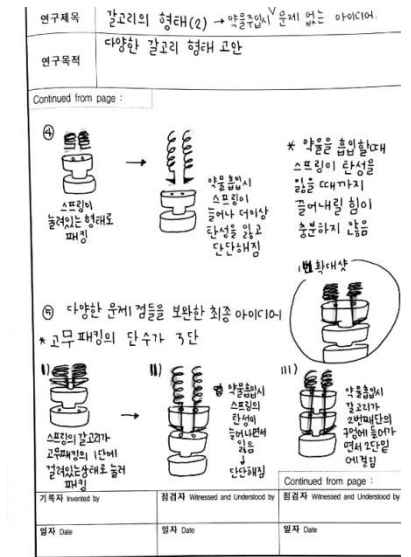 연구제목
갈고리의 형태(2) → 약물주입시 ∨ 문제 없는 아이디어.
연구목적
다양한 갈고리 형태 고안
Continued from page :
④
스프링이
눌려있는 형태로
패킹
약물흡입시
스프링이
늘어나 더이상
탄성을 잃고
단단해짐
* 약물을 흡입할때
스프링이 탄성을
잃을 때까지
끌어내릴 힘이
충분하지 않음
확대샷
⑤ 다양한 문제점들을 보완한 최종 아이디어
* 고무패킹의 단수가 3단
I)
스프링의 갈고리가
고무패킹의 1단에
걸려있는상태로 눌러
패킹
II)
약물흡입시
스프링의
탄성이
늘어나면서
잃음
↓
단단해짐
III)
약물흡입시
갈고리가
2번째단의
구멍에 들어가
면서 2단밑
에걸림
Continued from page :
기록자 Invented by
점검자 Witnessed and Understood by
점검자 Witnessed and Understood by
일자 Date
일자 Date
일자 Date